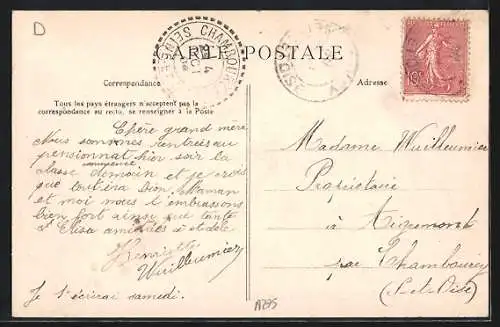 D
CARTE POSTALE
CHAMBOURCY
Correspondance
Adresse
Tous les pays étrangers n'acceptent pas la
correspondance au recto, se renseigner à la Poste
Chère grand mère
Nous sommes rentrées au
pensionnat hier soir la
classe commence demain et je crois
que tout ira bien. Maman
et moi nous t'embrassons
bien fort ainsi que tante
et Elisa amitiés à Adèle
Henriette
Wuilleumier
Je t'écrirai samedi.
Madame Wuilleumier
Propriétaire
à Aigremont
par Chambourcy
(S-et-Oise)
A235